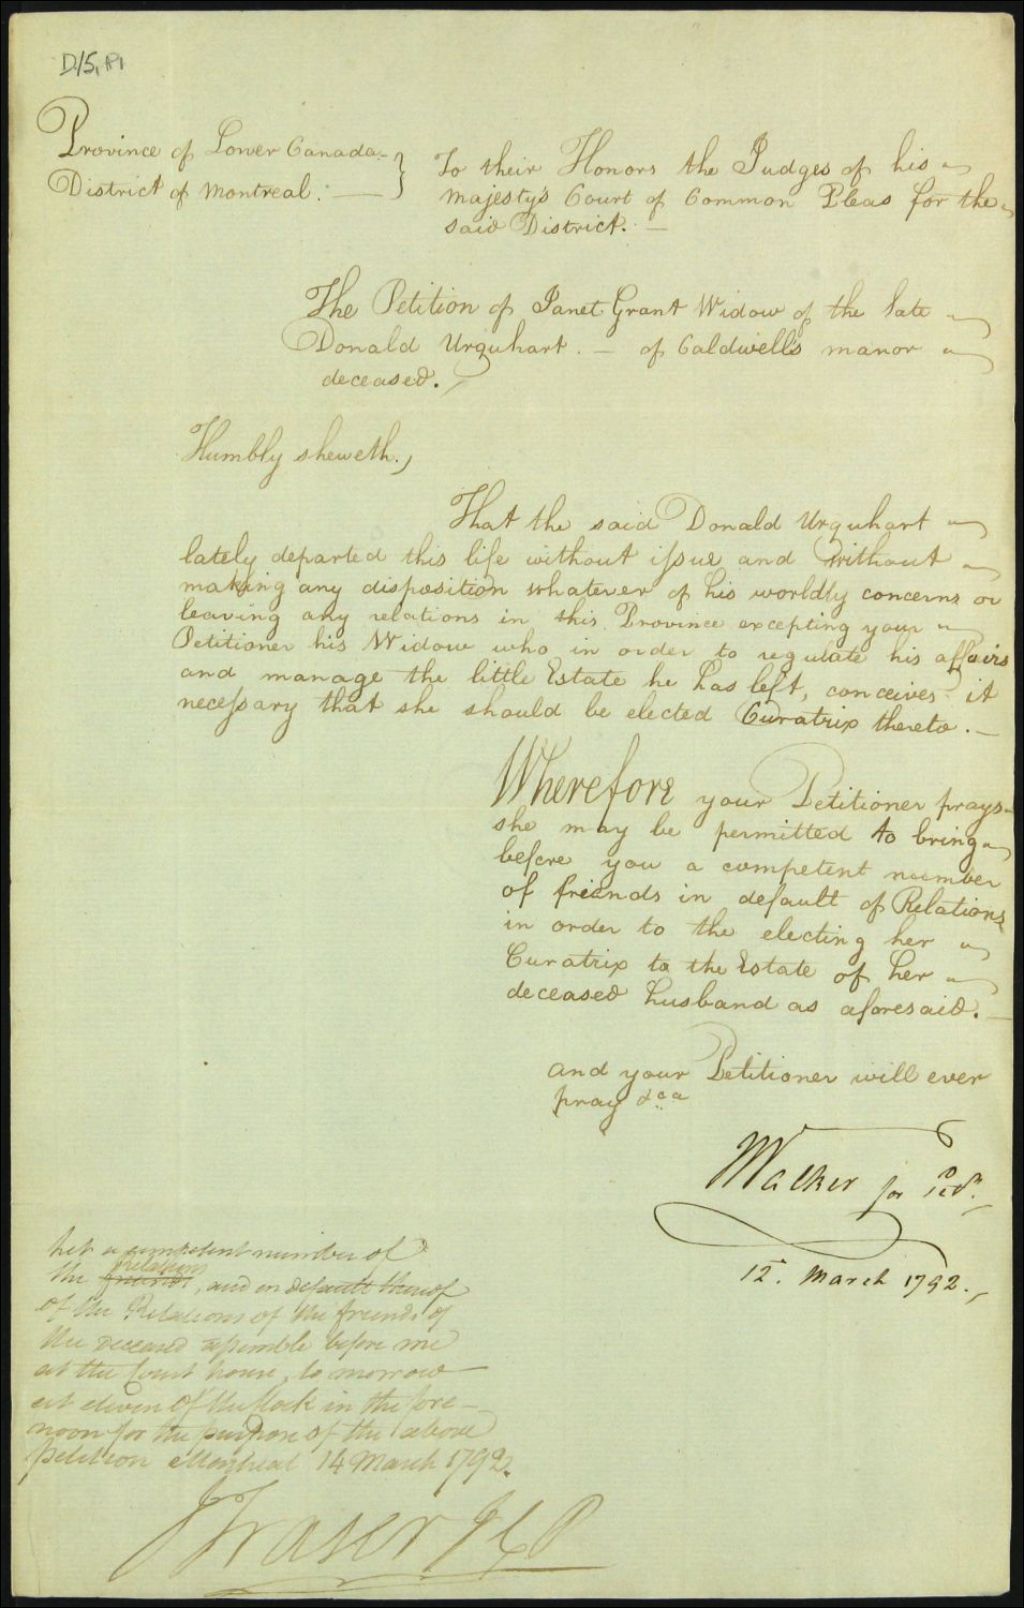 D.15, P1
Province of Lower Canada
District of Montreal. —
To their Honors the Judges of his
majesty's Court of Common Pleas for the
said District. —
The Petition of Janet Grant Widow of the late
Donald Urquhart. — of Caldwell's manor
deceased.
Humbly sheweth,
That the said Donald Urquhart
lately departed this life without issue and without
making any disposition whatever of his worldly concerns or
leaving any relations in this Province excepting your
Petitioner his Widow who in order to regulate his affairs
and manage the little Estate he has left, conceives it
necessary that she should be elected Curatrix thereto. —
Wherefore your Petitioner prays
she may be permitted to bring
before you a competent number
of friends in default of Relations
in order to the electing her
Curatrix to the Estate of her
deceased husband as aforesaid. —
and your Petitioner will ever
pray &ca
Walker for Petr.
12. March 1792.
Let a competent number of
relations
the friends, and in default thereof
of the Relations of the friends of
the deceased assemble before me
at the Court house, to morrow
at eleven of the Clock in the fore-
noon for the purpose of the above
petition Montreal 14 March 1792.
J Fraser JCP